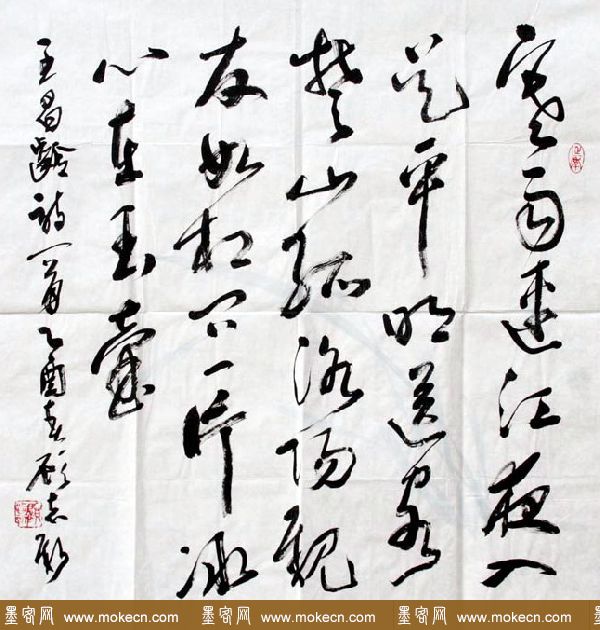 寒雨连江夜入
吴平明送客
楚山孤洛阳亲
友如相问一片冰
心在玉壶
王昌龄诗一首乙酉春顾志
墨客网 www.mokecn.com 墨客网 www.mokecn.com 墨客网 www.mokecn.com